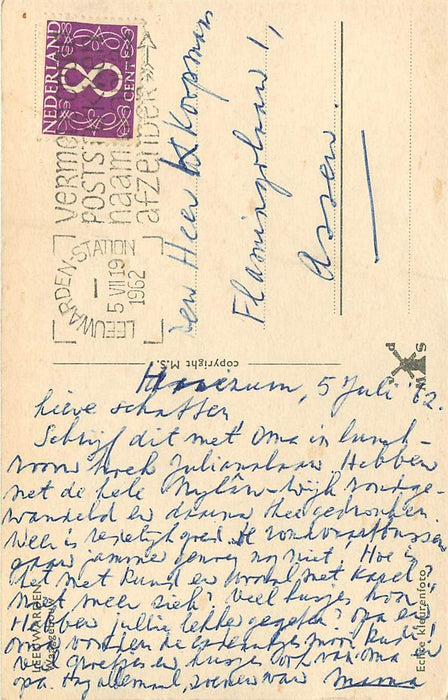 NEDERLAND
8
CENT
verme
POSTS
naam
afzender
LEEUWARDEN-STATION
5 VII 19
1962
den Heer H Koopmans
Flamingolaan 1,
Assen.
copyright M.S.
Huizum, 5 Juli '62.
Lieve schatten!
Schrijf dit met Oma in lunch-
room hoek Julianalaan. Hebben
met de hele Nylân-wijk rondge-
wandeld en daarna thee gedronken
Weer is redelijk goed. De rondvaartbussen
gaan jammer genoeg nog niet. Hoe is
het met Ruud en vooral met Karel,
niet meer ziek? Veel kusjes hoor
Hebben jullie lekker gegeten? Opa en
oma vonden de cadeautjes mooi Ruud!
Veel groetjes en kusjes ook van oma en
opa. Dag allemaal, zoenen van Mama
LEEUWARDEN
Waaggebouw
Echte kleurenfoto